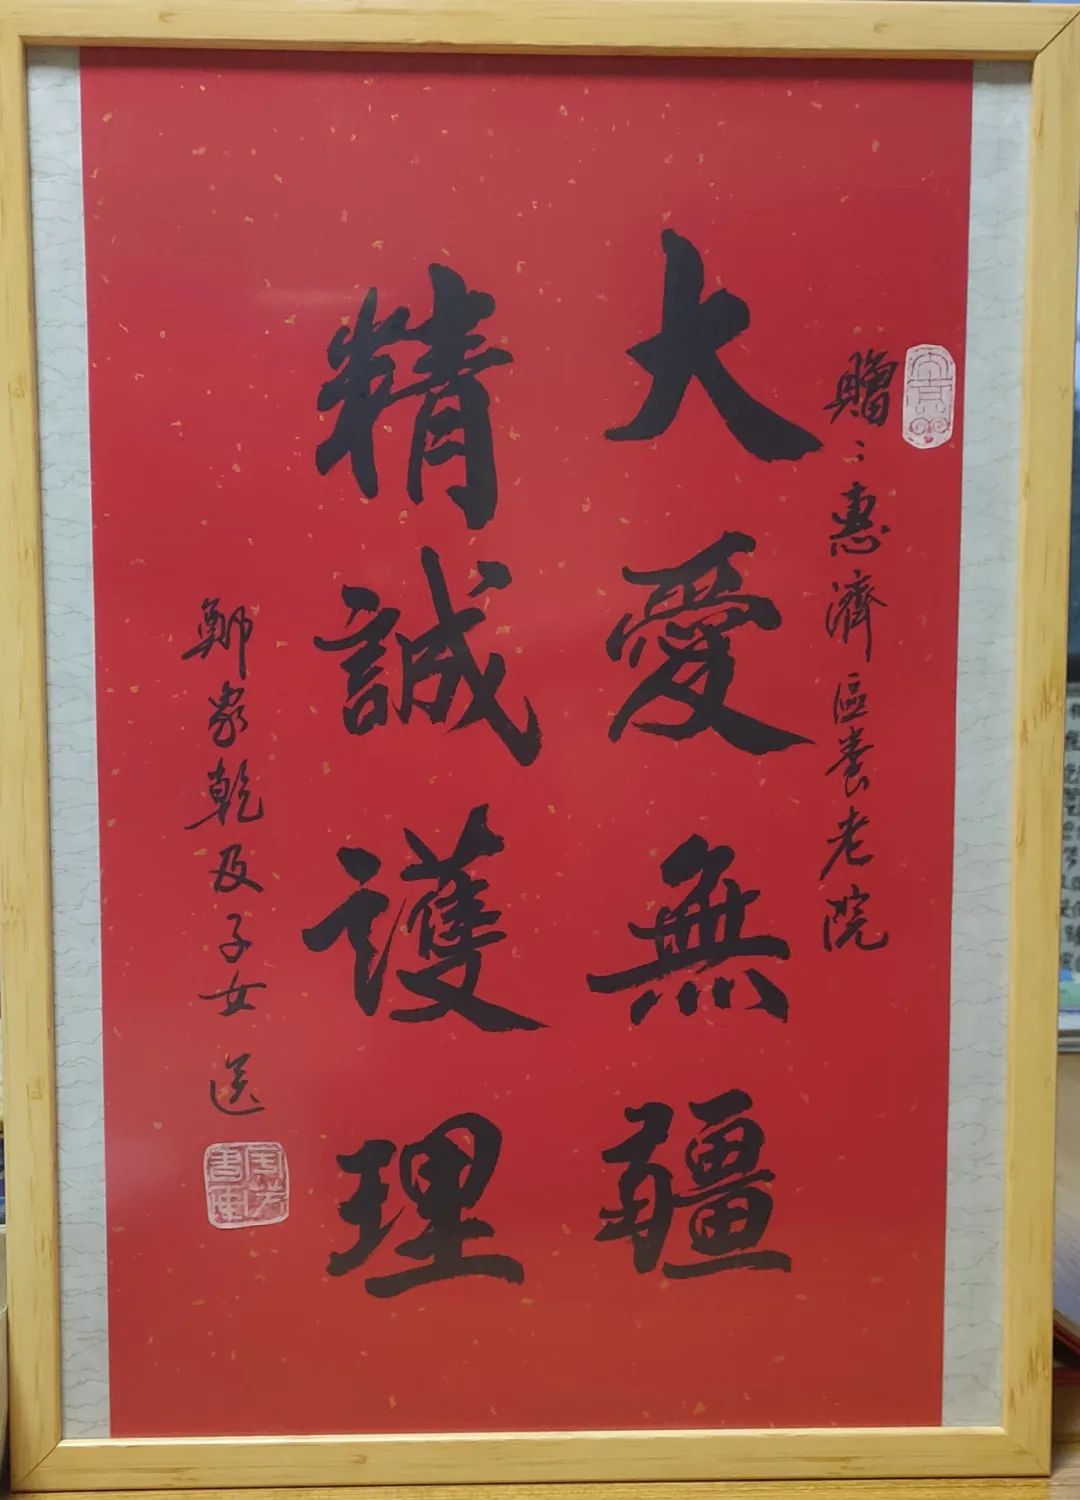 贈：惠濟區養老院
大愛無疆
精誠護理
鄭家乾及子女 送